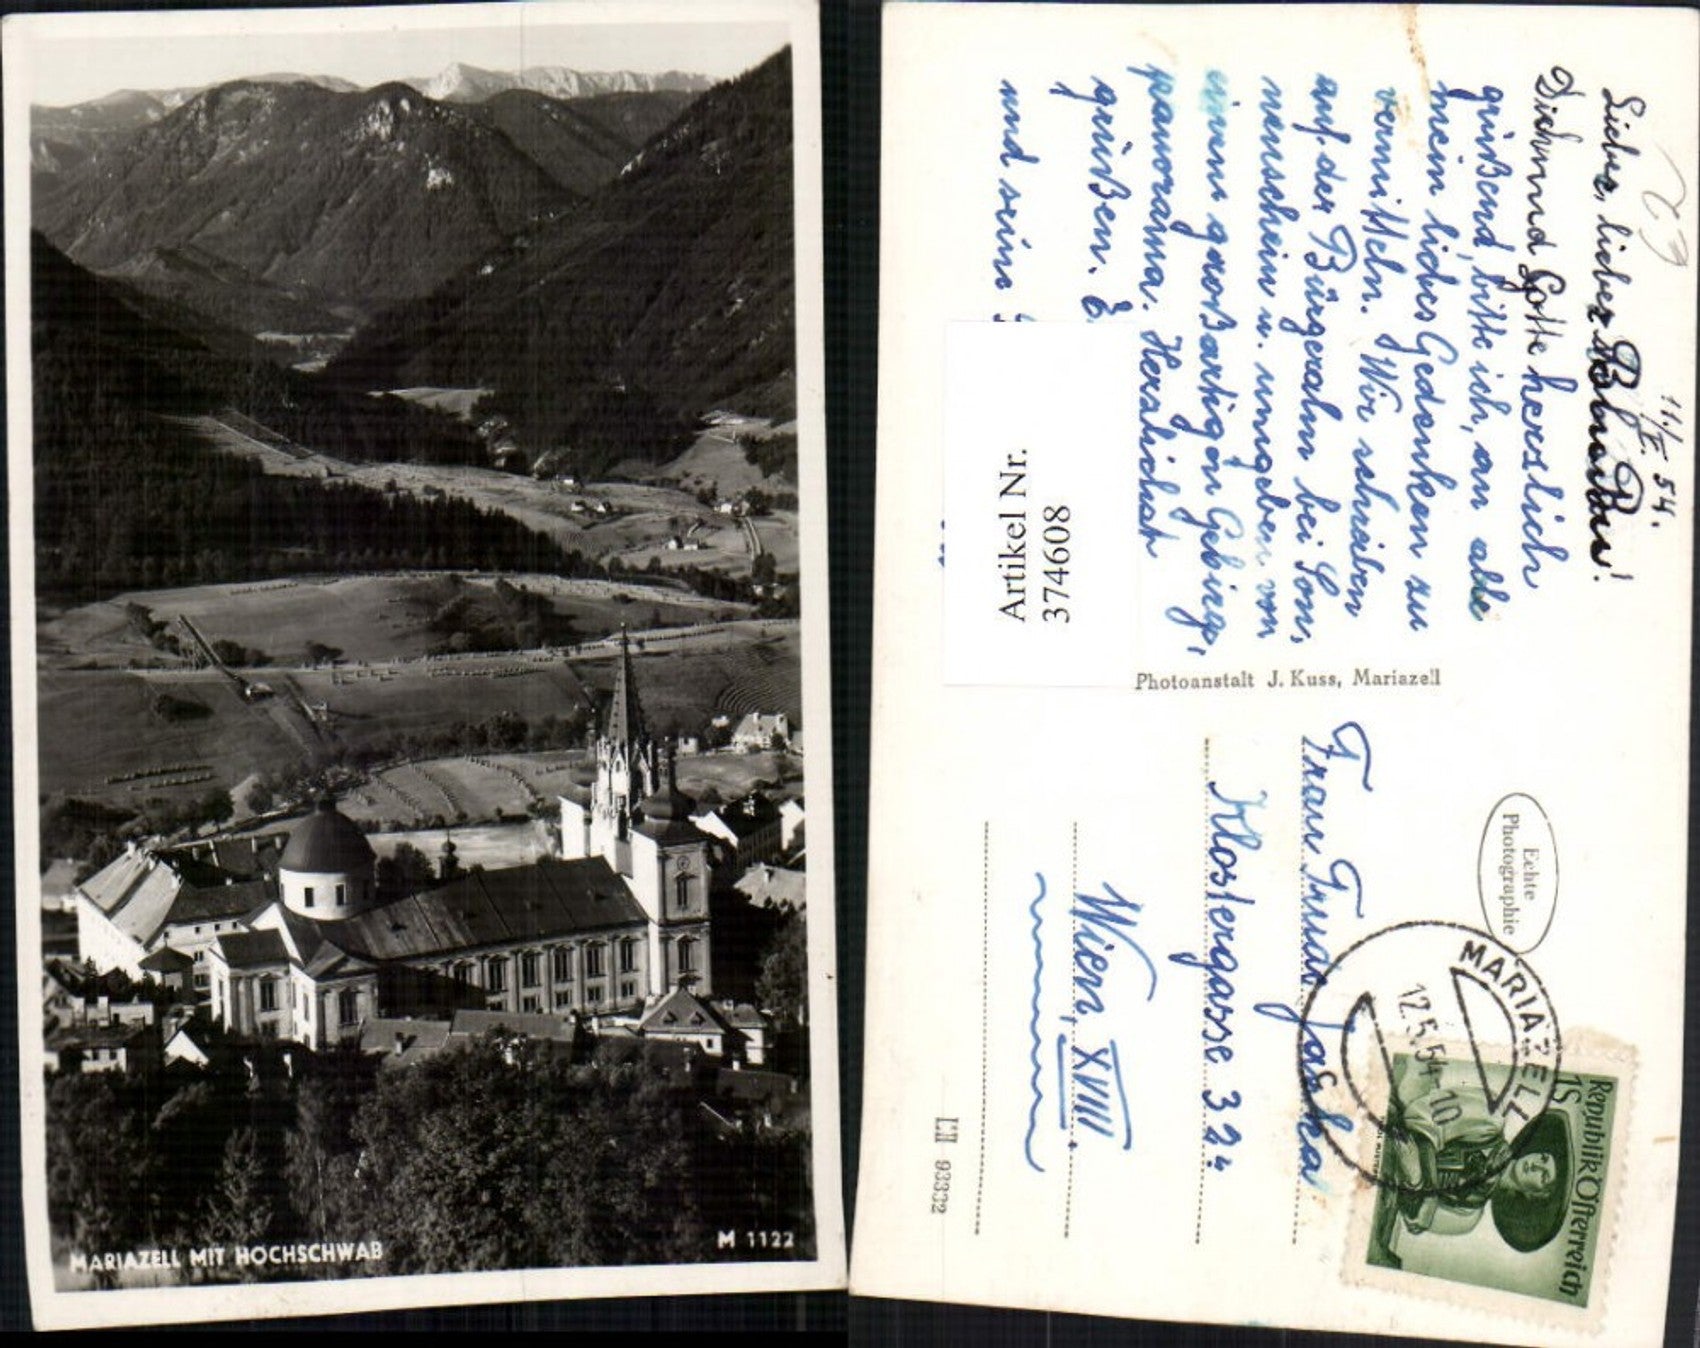 MARIAZELL MIT HOCHSCHWAB
M 1122
11./V. 54.
Lieber, lieber
Dich und Lotte herzlich
grüßend, bitte ich, an alle
mein liebes Gedenken zu
vermitteln. Wir schreiben
auf der Bürgeralm bei Son,
nenschein u. umgeben von
einem großartigen Gebirgs,
panorama. Herzlichst
grüßen.
und sein
Artikel Nr.
374608
Photoanstalt J. Kuss, Mariazell
Echte
Photographie
MARIAZELL
12.5.54-10
1S
Republik Österreich
Frau Trude
Klostergasse 32
Wien, XVIII
L:II 93332